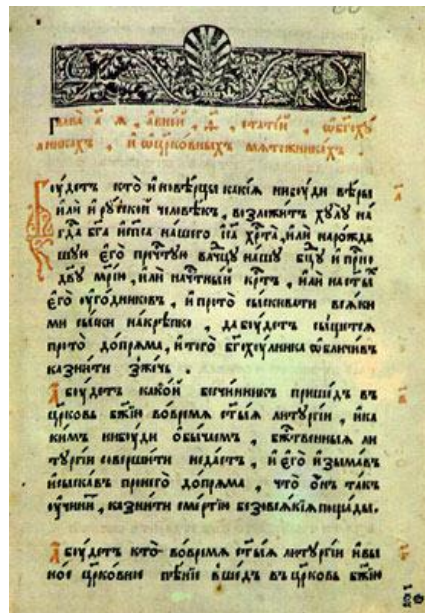 Глава а҃ я , а в ней , д҃ , статей , ѡ бг҃оху
лникахъ , и ѡ цр҃ковныхъ мятежникахъ .
Бꙋдетъ кто иновѣрцы какїя нибꙋди вѣры
или и рꙋской человѣкъ , возложитъ хꙋлꙋ на
гд҃а бг҃а и сп҃са нашего іс҃а хр҃та , или на рождь
шꙋю его преч҃тꙋю влчцꙋ нашꙋ бц҃ꙋ и прн҃о
дв҃ꙋ мр҃їю , или на ч҃тный кр҃тъ , или на ст҃ы
его оугодниковъ , и про то сыскивати всяки
ми сыски накрѣпко , да бꙋдетъ сыщется
про то допряма , и того бг҃охꙋлника ѡбличивъ
казнити зжечь .
А бꙋдетъ какой безчинникъ пришедъ въ
цр҃ковь бж҃їю во время ст҃ыя литꙋргїи , и ка
кимъ нибꙋди обычаемъ , бж҃твенныя ли
тꙋргїи совершити недастъ , и его изымавъ
и сыскавъ про него допряма , что онъ такъ
оучинитъ , казнити смертїю безо всякїя пощады .
А бꙋдетъ кто во время ст҃ыя литꙋргїи и в ы
ное цр҃ковное пѣнїе вшедъ въ цр҃ковь бж҃їю